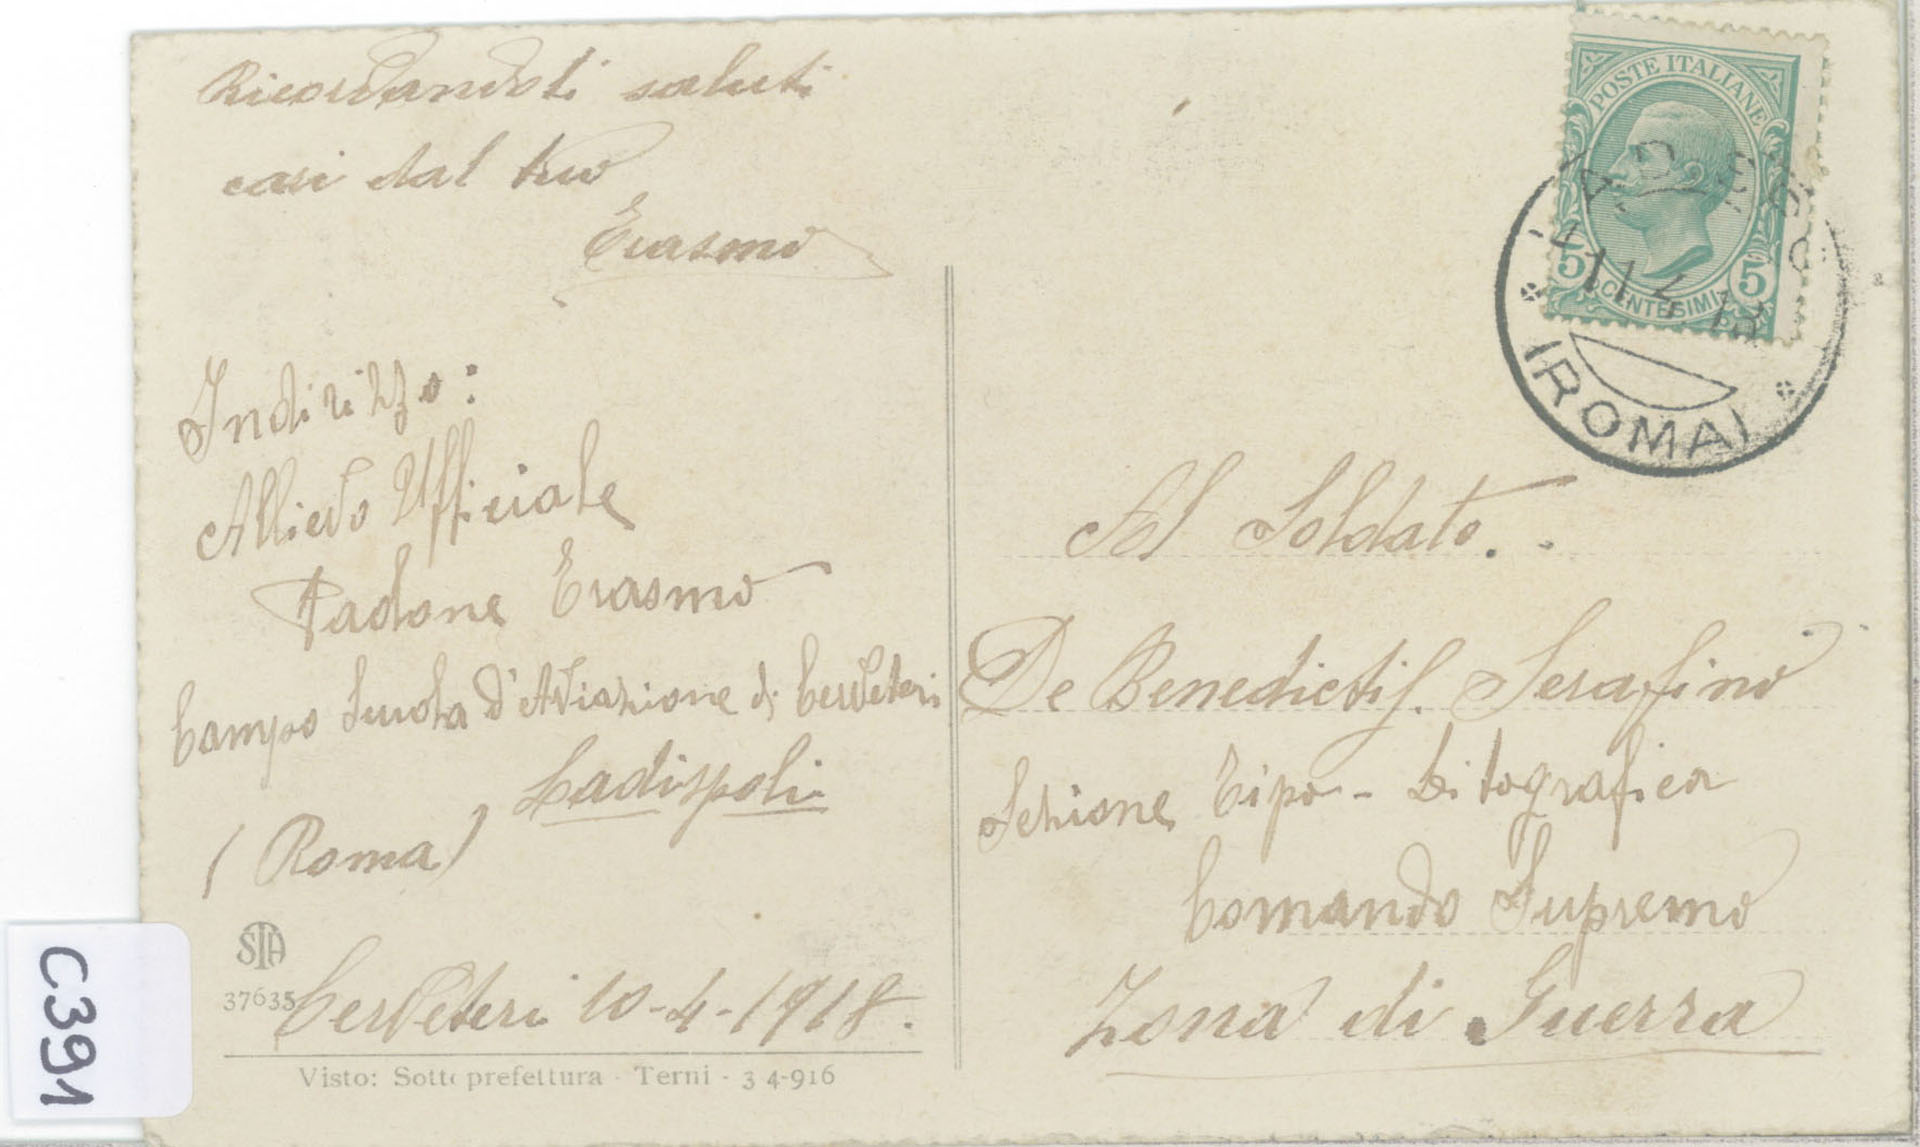 Ricordandoti saluti
cari dal tuo
Erasmo
Indirizzo:
Allievo Ufficiale
Padone Erasmo
Campo Scuola d'Aviazione di Cerveteri
Ladispoli
(Roma)
STA
37635
Cerveteri 10-4-1918.
Visto: Sottoprefettura - Terni - 3 4-916
POSTE ITALIANE
5 5
CENTESIMI
11.4.18
(ROMA)
Al Soldato..
De Benedictis. Serafino
Sezione Tipo-Litografica
Comando Supremo
Zona di Guerra
C391